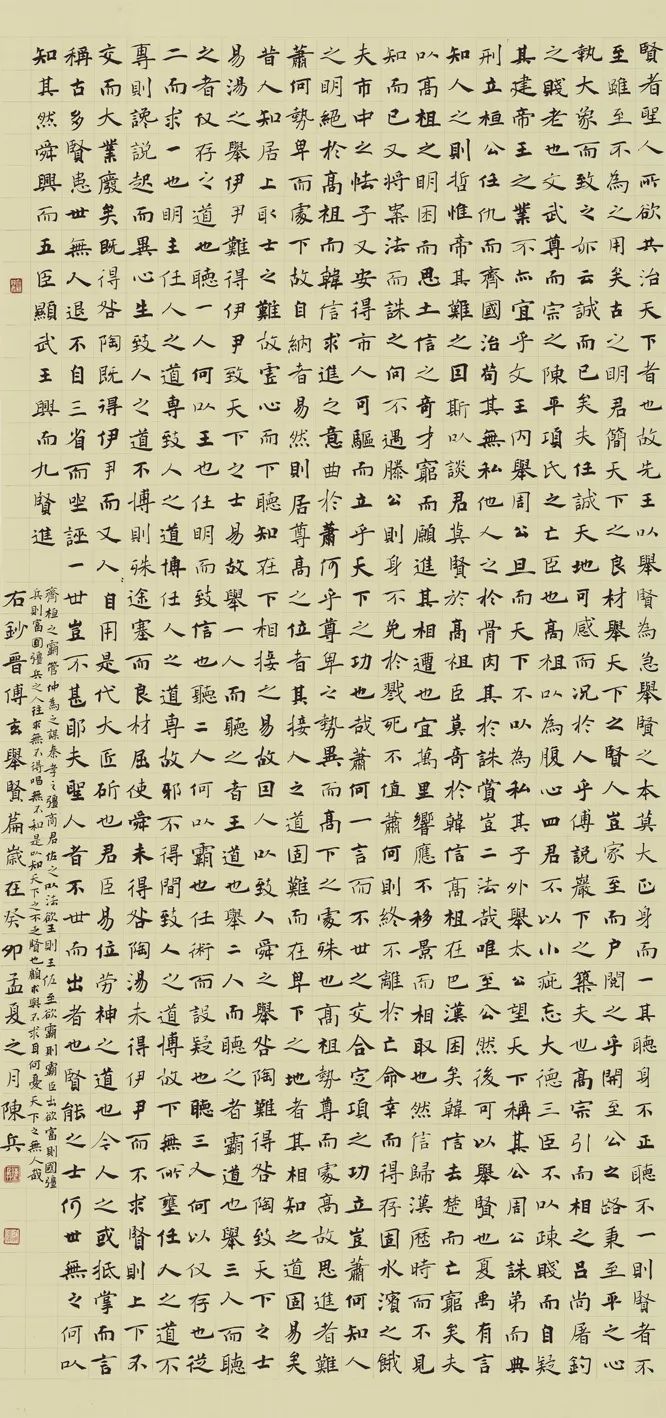 賢者聖人所欲共治天下者也故先王以舉賢為急舉賢之本莫大正身而一其聽身不正聽不一則賢者不
至雖至不為之用矣古之明君簡天下之良材舉天下之賢人豈家至而户閱之乎開至公之路秉至平之心
執大象而致之亦云誠而已矣夫任誠天地可感而况於人乎傅說巖下之築夫也高宗引而相之吕尚屠釣
之賤老也文武尊而宗之陳平項氏之亡臣也高祖以為腹心四君不以小疵忘大德三臣不以疎賤而自疑
其建帝王之業不亦宜乎文王內舉周公旦而天下不以為私其子外舉太公望天下稱其公周公誅弟而典
刑立桓公任仇而齊國治苟其無私他人之於骨肉其於誅賞豈二法哉唯至公然後可以舉賢也夏禹有言
知人之則哲惟帝其難之因斯以談君莫賢於高祖臣莫奇於韓信高祖在巴漢困矣韓信去楚而亡窮矣夫
以高祖之明困而思士信之奇才窮而願進其相遭也宜萬里響應不移景而相取也然信歸漢歷時而不見
知而已又將案法而誅之向不遇滕公則身不免於戮死不值蕭何則終不離於亡命幸而得存固水濱之餓
夫市中之怯子又安得市人可驅而立乎天下之功也哉蕭何一言而不世之交合定項之功立豈蕭何知人
之明絕於高祖而韓信求進之意曲於蕭何乎尊卑之勢異而高下之處殊也高祖勢尊而處高故思進者難
蕭何勢卑而處下故自納者易然則居尊高之位者其接人之道固難而在卑下之地者其相知之道固易矣
昔人知居上取士之難故虛心而下聽知在下相接之易故因人以致人舜之舉咎陶難得咎陶致天下之士
易湯之舉伊尹難得伊尹致天下之士易故舉一人而聽之者王道也舉二人而聽之者霸道也舉三人而聽
之者仅存之道也聽一人何以王也任明而致信也聽二人何以霸也任術而設疑也聽三人何以仅存也從
二而求一也明主任人之道專致人之道博任人之道專故邪不得間致人之道博故下無所壅任人之道不
專則讒說起而異心生致人之道不博則殊途塞而良材屈使舜未得咎陶湯未得伊尹而不求賢則上下不
交而大業廢矣既得咎陶既得伊尹而又人自用是代大匠斫也君臣易位勞神之道也今人之或抵掌而言
稱古多賢患世無人退不自三省而坐誣一世豈不甚耶夫聖人者不世而出者也賢能之士何世無之何以
知其然舜興而五臣顯武王興而九賢進
齊桓之霸管仲為之謀秦孝之彊商君佐之以法欲王則王佐至欲霸則霸臣出欲富則國彊
兵則富國彊兵之人往求無不得唱無不和是以知天下之不乏賢也顧求與不求耳何憂天下之無人哉
右鈔晉傅玄舉賢篇歲在癸卯孟夏之月陳兵